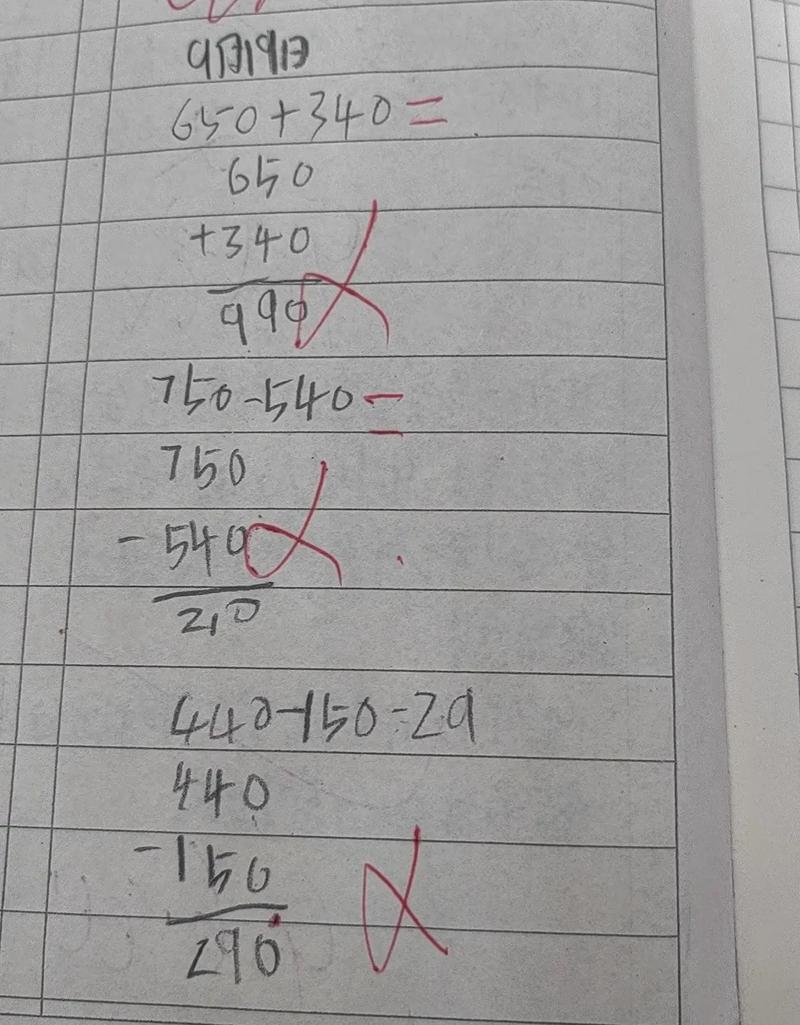 9月19日
650+340=
650
+340
990
750-540=
750
-540
210
440-150=29
440
-150
290